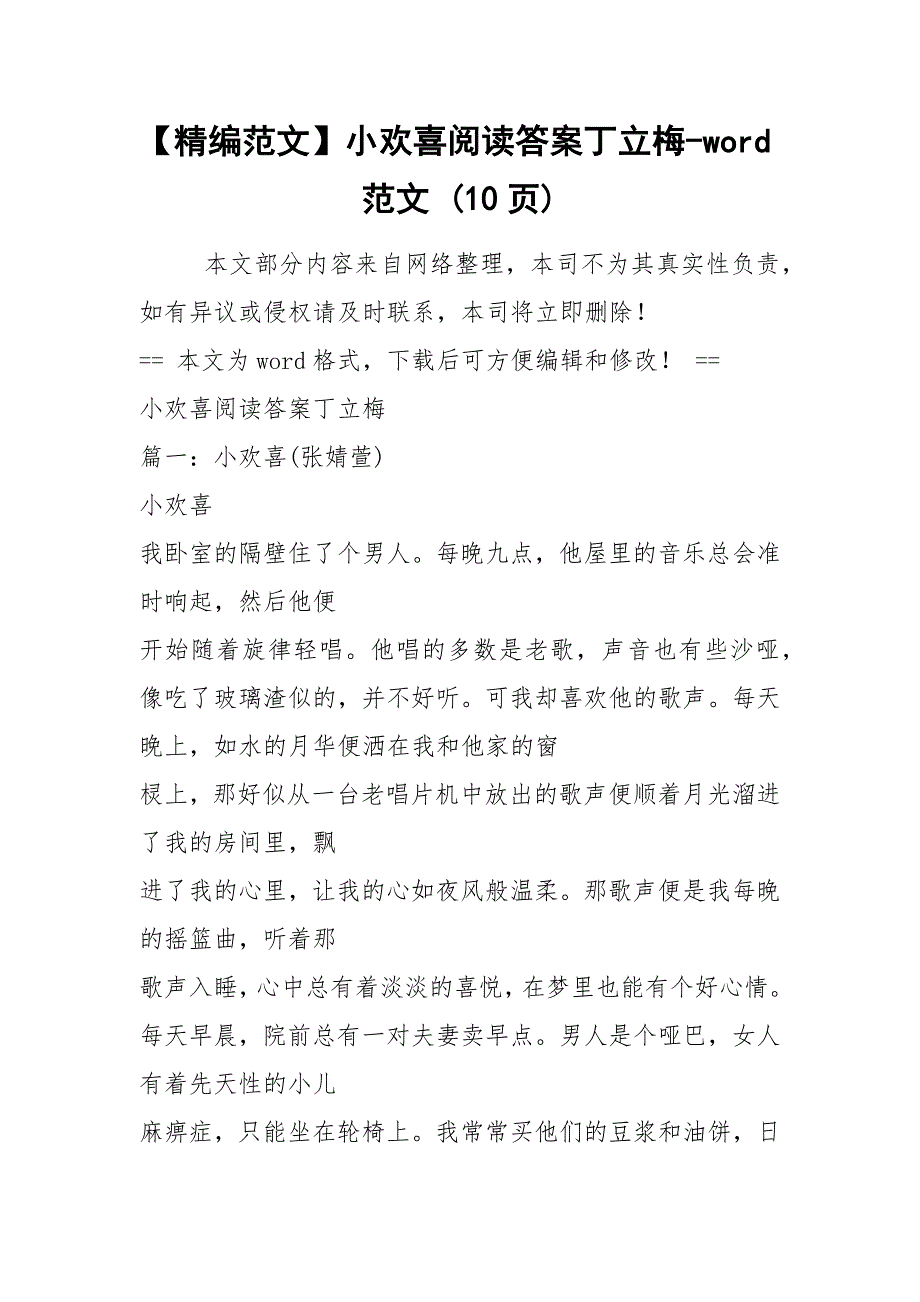 【精编范文】小欢喜阅读答案丁立梅-word
范文 (10页)
本文部分内容来自网络整理，本司不为其真实性负责，
如有异议或侵权请及时联系，本司将立即删除！
== 本文为word格式，下载后可方便编辑和修改！ ==
小欢喜阅读答案丁立梅
篇一：小欢喜(张婧萱)
小欢喜
我卧室的隔壁住了个男人。每晚九点，他屋里的音乐总会准
时响起，然后他便
开始随着旋律轻唱。他唱的多数是老歌，声音也有些沙哑，
像吃了玻璃渣似的，并不好听。可我却喜欢他的歌声。每天
晚上，如水的月华便洒在我和他家的窗
棂上，那好似从一台老唱片机中放出的歌声便顺着月光溜进
了我的房间里，飘
进了我的心里，让我的心如夜风般温柔。那歌声便是我每晚
的摇篮曲，听着那
歌声入睡，心中总有着淡淡的喜悦，在梦里也能有个好心情。
每天早晨，院前总有一对夫妻卖早点。男人是个哑巴，女人
有着先天性的小儿
麻痹症，只能坐在轮椅上。我常常买他们的豆浆和油饼，日